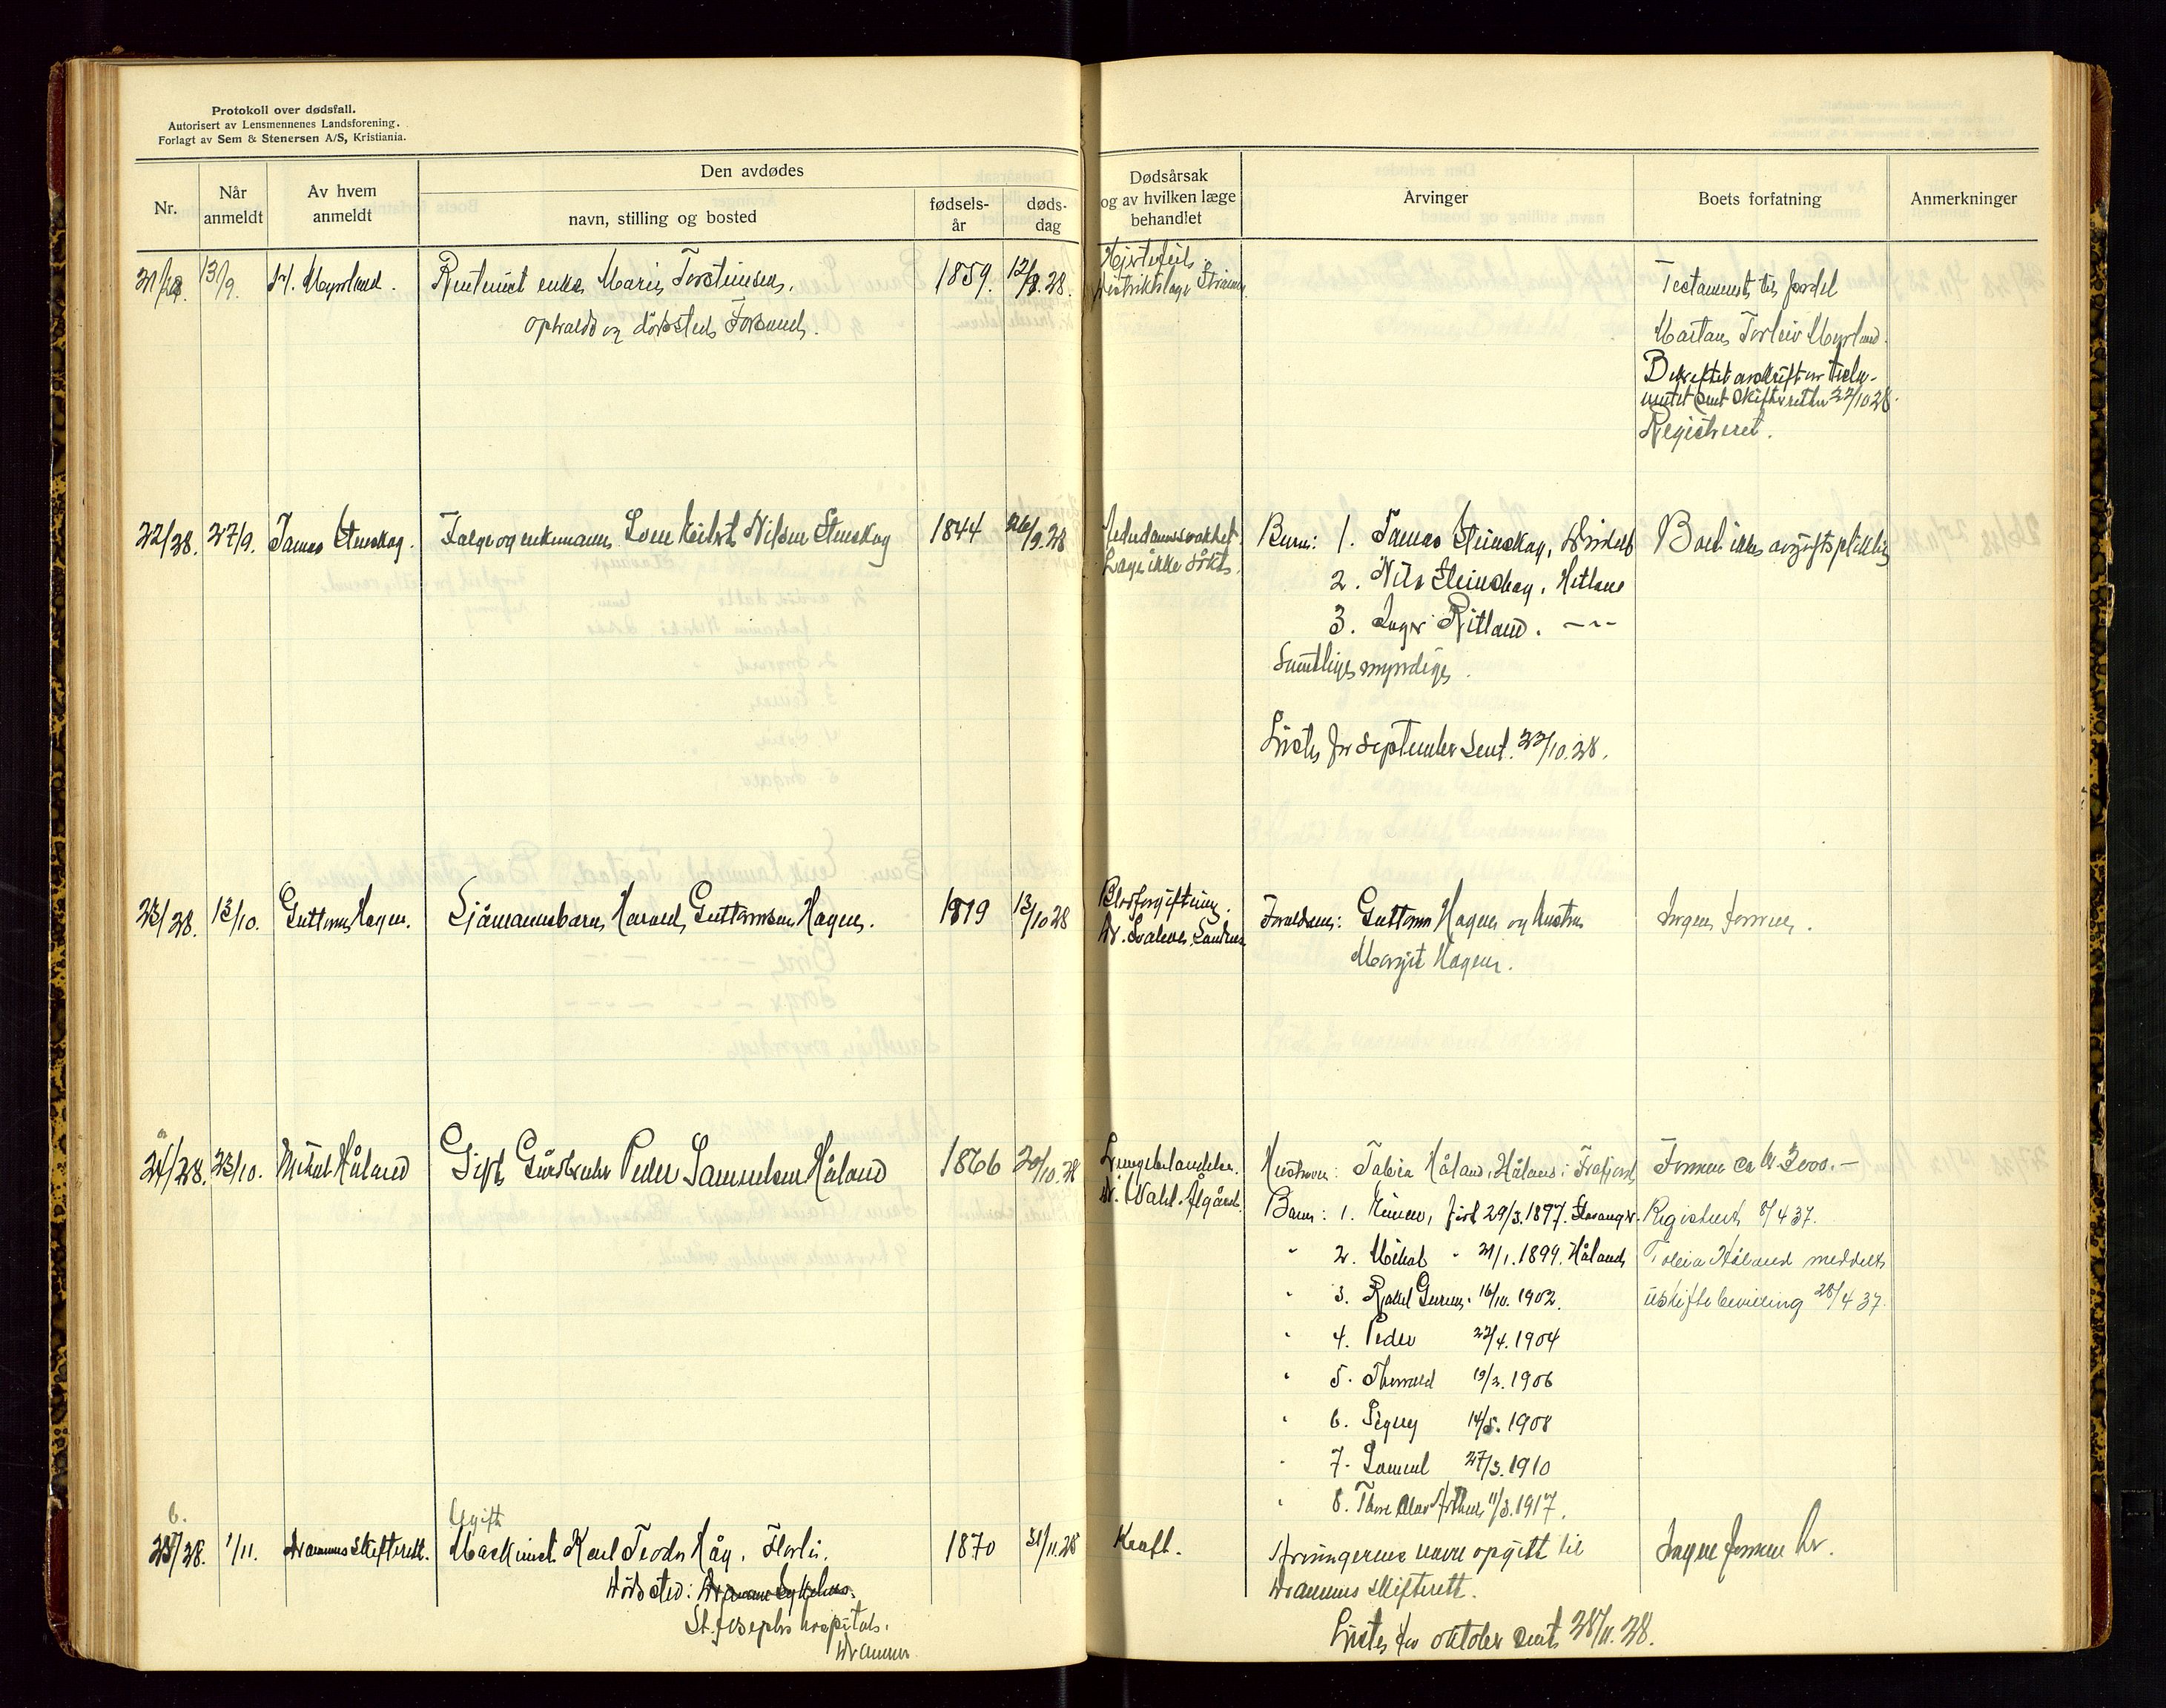 Protokoll over dødsfall.
Autorisert av Lensmennenes Landsforening.
Forlagt av Sem & Stenersen A/S, Kristiania.
Nr.
Når anmeldt
Av hvem anmeldt
Den avdødes
navn, stilling og bosted
fødsels-år
døds-dag
Dødsårsak og av hvilken læge behandlet
Arvinger
Boets forfatning
Anmerkninger
21/28. 13/9. M. Myrland. enke Marie Torsteinsen, 1859. 12/9.28. Hjertefeil
opholds og dødssted: Forsand. Distriktslæge
Testament til fordel
Martam Torleiv Myrland.
Bekreftet avskrift av testa-
mentet sent skifteretten 22/10 28.
Registreret.
22/28. 27/9. Tamas Steinskog. Følge og enkemann Sven Eilert Nilsen Steinskog 1844 26/9.28 Alderdomssvakhet. Barn: 1. Tamas Steinskog, Boet ikke avgiftspliktig
Læge ikke søkt. 2. Nils Steinskog, Hetland
3. Inger Ritland. -"-
Samtlige myndige.
Liste for september sent 22/10.28.
23/28. 13/10. Guttorm Hagen. Sjømannsbarn Harald Guttormsen Hagen. 1919 13/10 28 Blodforgiftning. Foreldrene: Guttorm Hagen og hustru Ingen formue.
Dr. Svalves, Sandnes Margit Hagen.
24/28. a 23/10. Mikal Håland Gift Gårdbruker Peder Samuelsen Håland 1866 20/10.28 Lungebetendelse. Hustruen: Tabia Håland, Håland i Frafjord Formue ca kr 3000.-
Dr. Wahl. Ålgård. Barn: 1. Einar, født 29/3.1897. Stavanger. Registrert 8/4 37.
" 2. Mikal " 21/1.1899. Håland Tobia Håland meddelt
" 3. Rakel Gurine. 16/10.1902. uskiftebevilling 28/4 37.
" 4. Peder 22/4.1904
" 5. Thorvald 19/2.1906
" 6. Signy 14/5.1908
" 7. Samuel 27/3.1910
" 8. Thore Olav Arthur 11/3.1917.
b.
Ugift
25/28. 1/11. Drammens Skifterett. Maskinist Karl Teodor Håg, Florli. 1870 31/11.28 Kreft. Arvingernes navn opgitt til Ingen formue her.
Dødssted: Drammen Sykehus. Drammens skifterett.
St. Josephs hospital. Liste for oktober sent 28/11.28.
Drammen